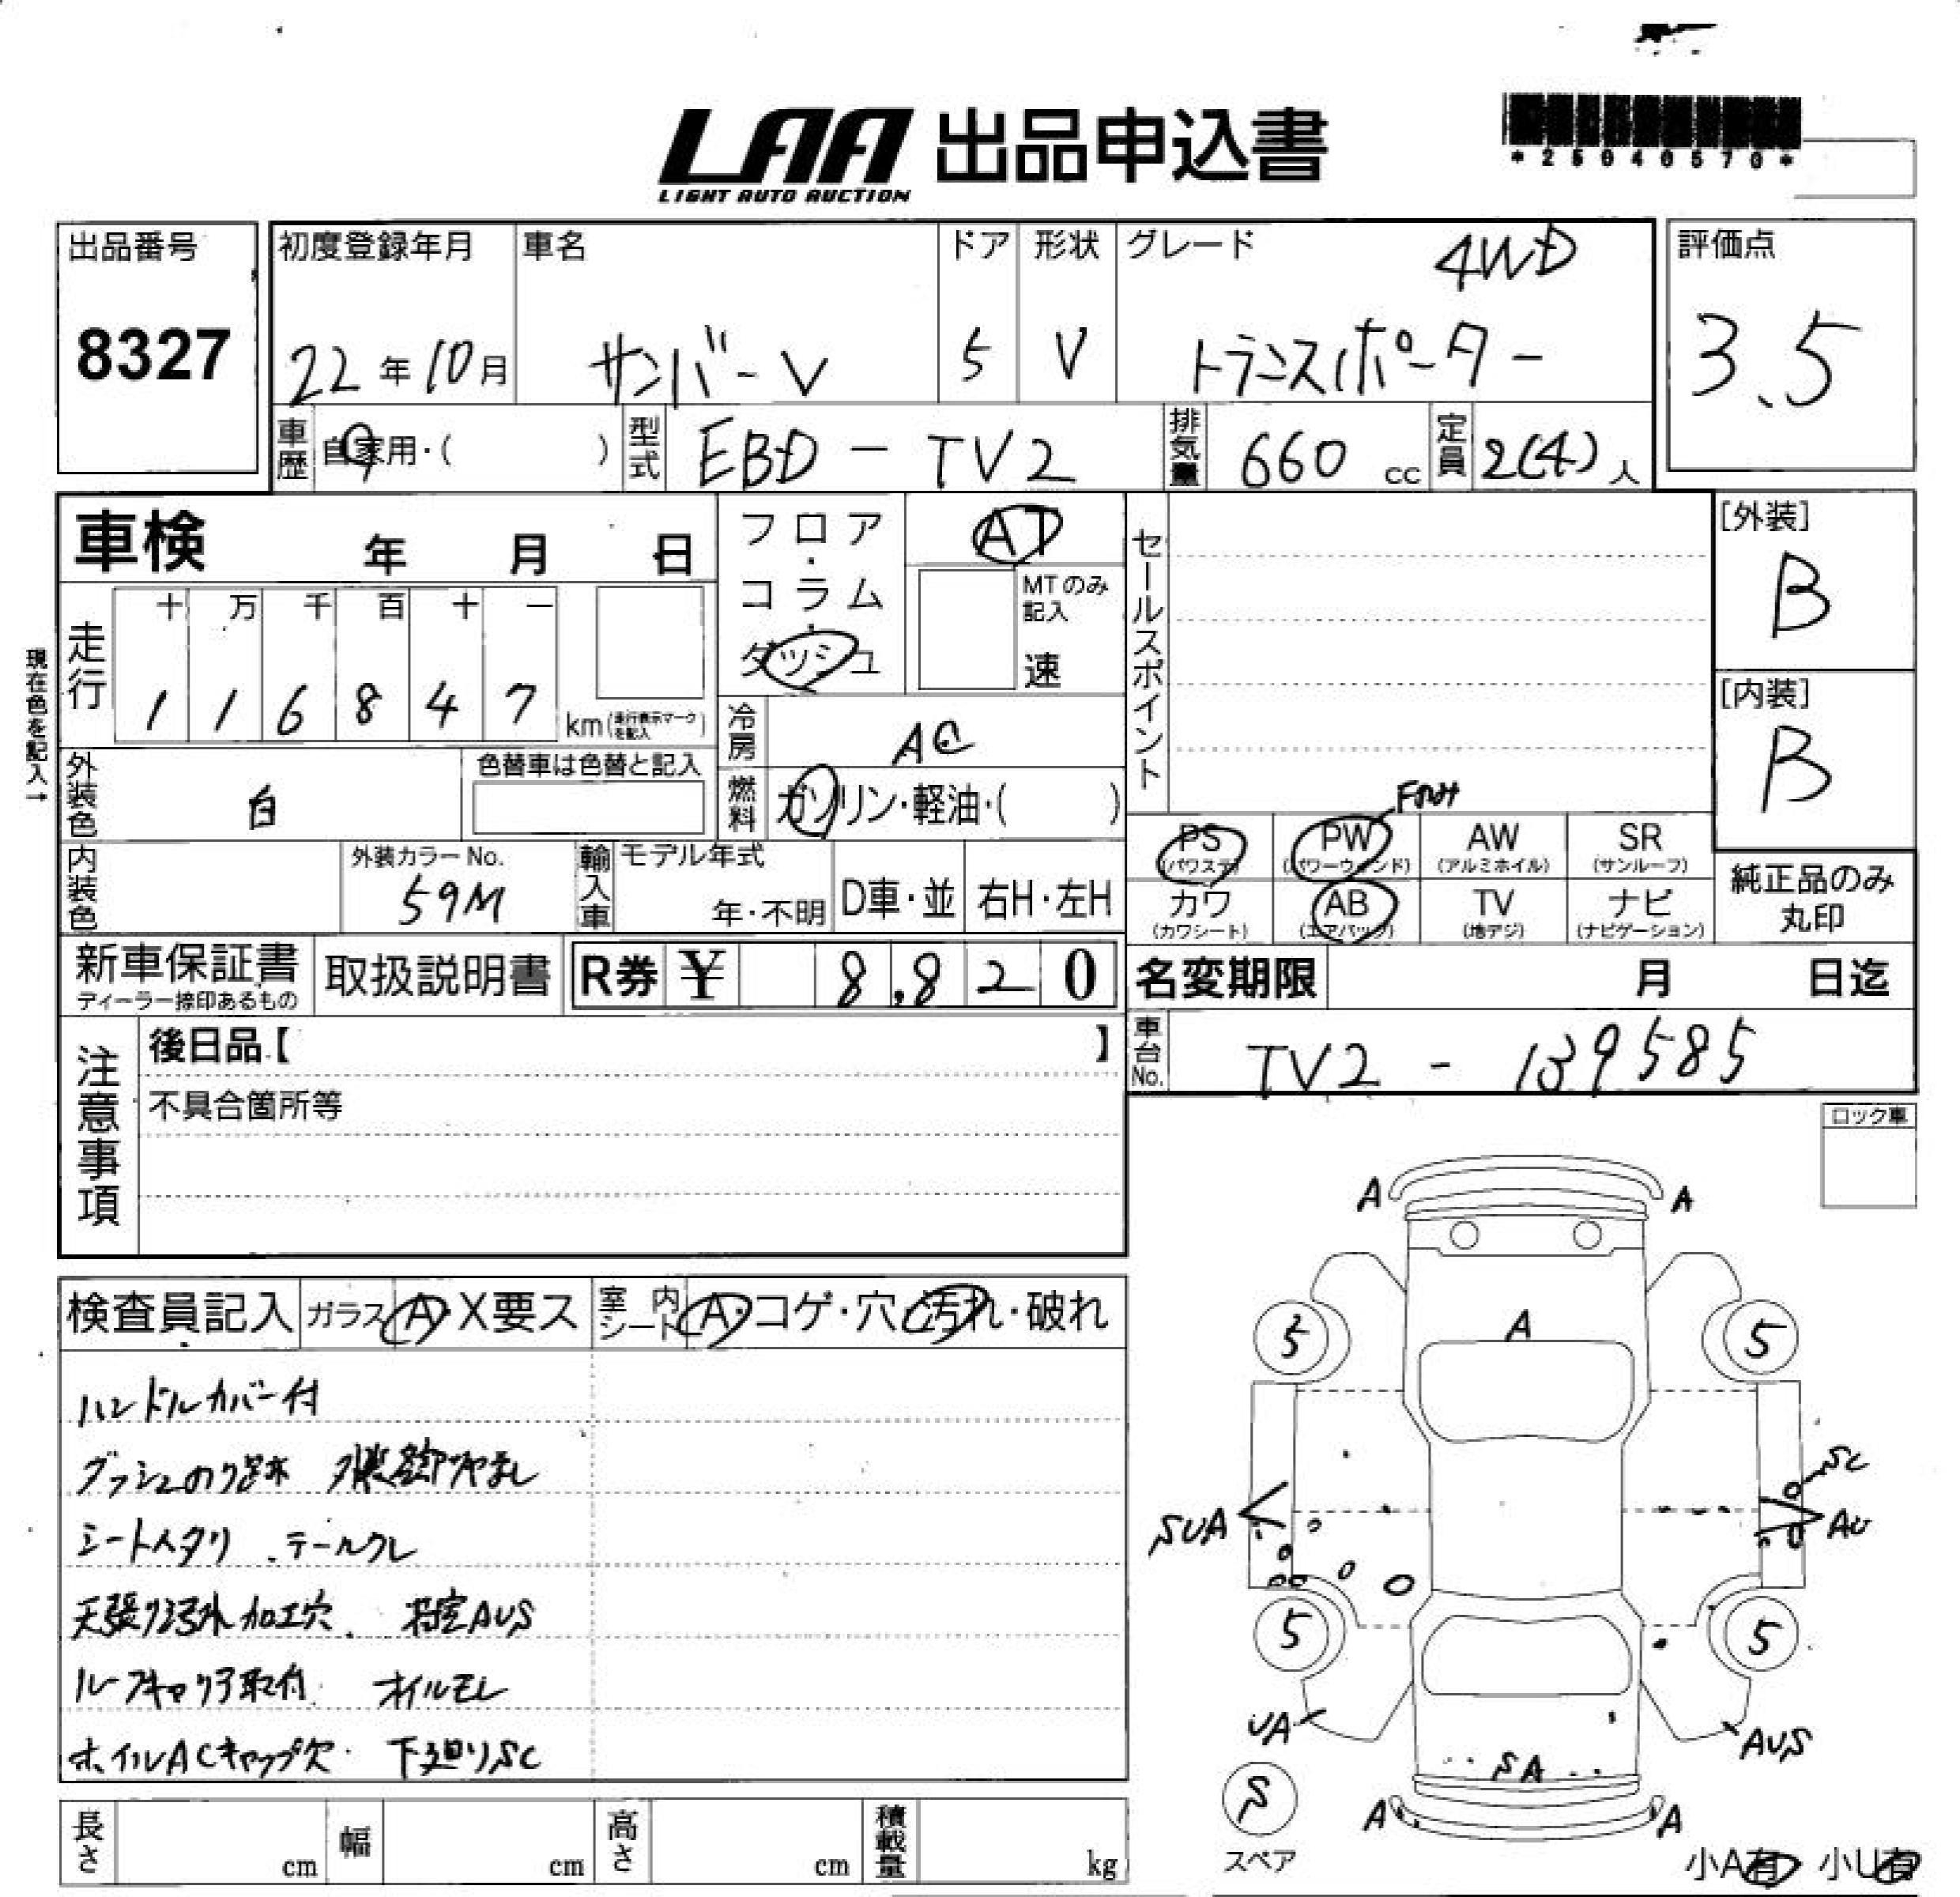 LAA 出品申込書
LIGHT AUTO AUCTION
*25040570*
出品番号
8327
初度登録年月 車名 ドア 形状 グレード 4WD
22年10月 サンバーV 5 V トランスポーター
評価点
3.5
車歴 自家用・( ) 型式 EBD-TV2 排気量 660 cc 定員 2(4)人
車検 年 月 日
フロア・コラム・ダッシュ
AT
MTのみ記入
速
セールスポイント
[外装]
B
[内装]
B
現在色を記入→
走行
十 万 千 百 十 一
1 1 6 8 4 7 km(走行表示マークを記入)
冷房 AC
外装色 白 色替車は色替と記入
燃料 ガソリン・軽油・( )
Fのみ
PS (パワステ) PW (パワーウィンド) AW (アルミホイル) SR (サンルーフ)
カワ (カワシート) AB (エアバッグ) TV (地デジ) ナビ (ナビゲーション)
純正品のみ丸印
内装色 外装カラーNo. 59M 輸入車 モデル年式 年・不明 D車・並 右H・左H
新車保証書 ディーラー捺印あるもの 取扱説明書 R券 ¥ 8,820
名変期限 月 日迄
車台No. TV2-139585
注意事項
後日品【 】
不具合箇所等
ロック車
検査員記入 ガラス A・X要ス 室内シート A・コゲ・穴・汚れ・破れ
ハンドルカバー付
ダッシュのり跡
シートヘタリ テールワレ
天張り汚れ 加工穴
ルーフキャリア取付 オイルモレ
ホイルACキャップ欠 下廻りSC
A A
A
5 5
SC
SUA AU
5 5
UA AUS
SA
S
スペア
A A
小A有 小U有
長さ cm 幅 cm 高さ cm 積載量 kg